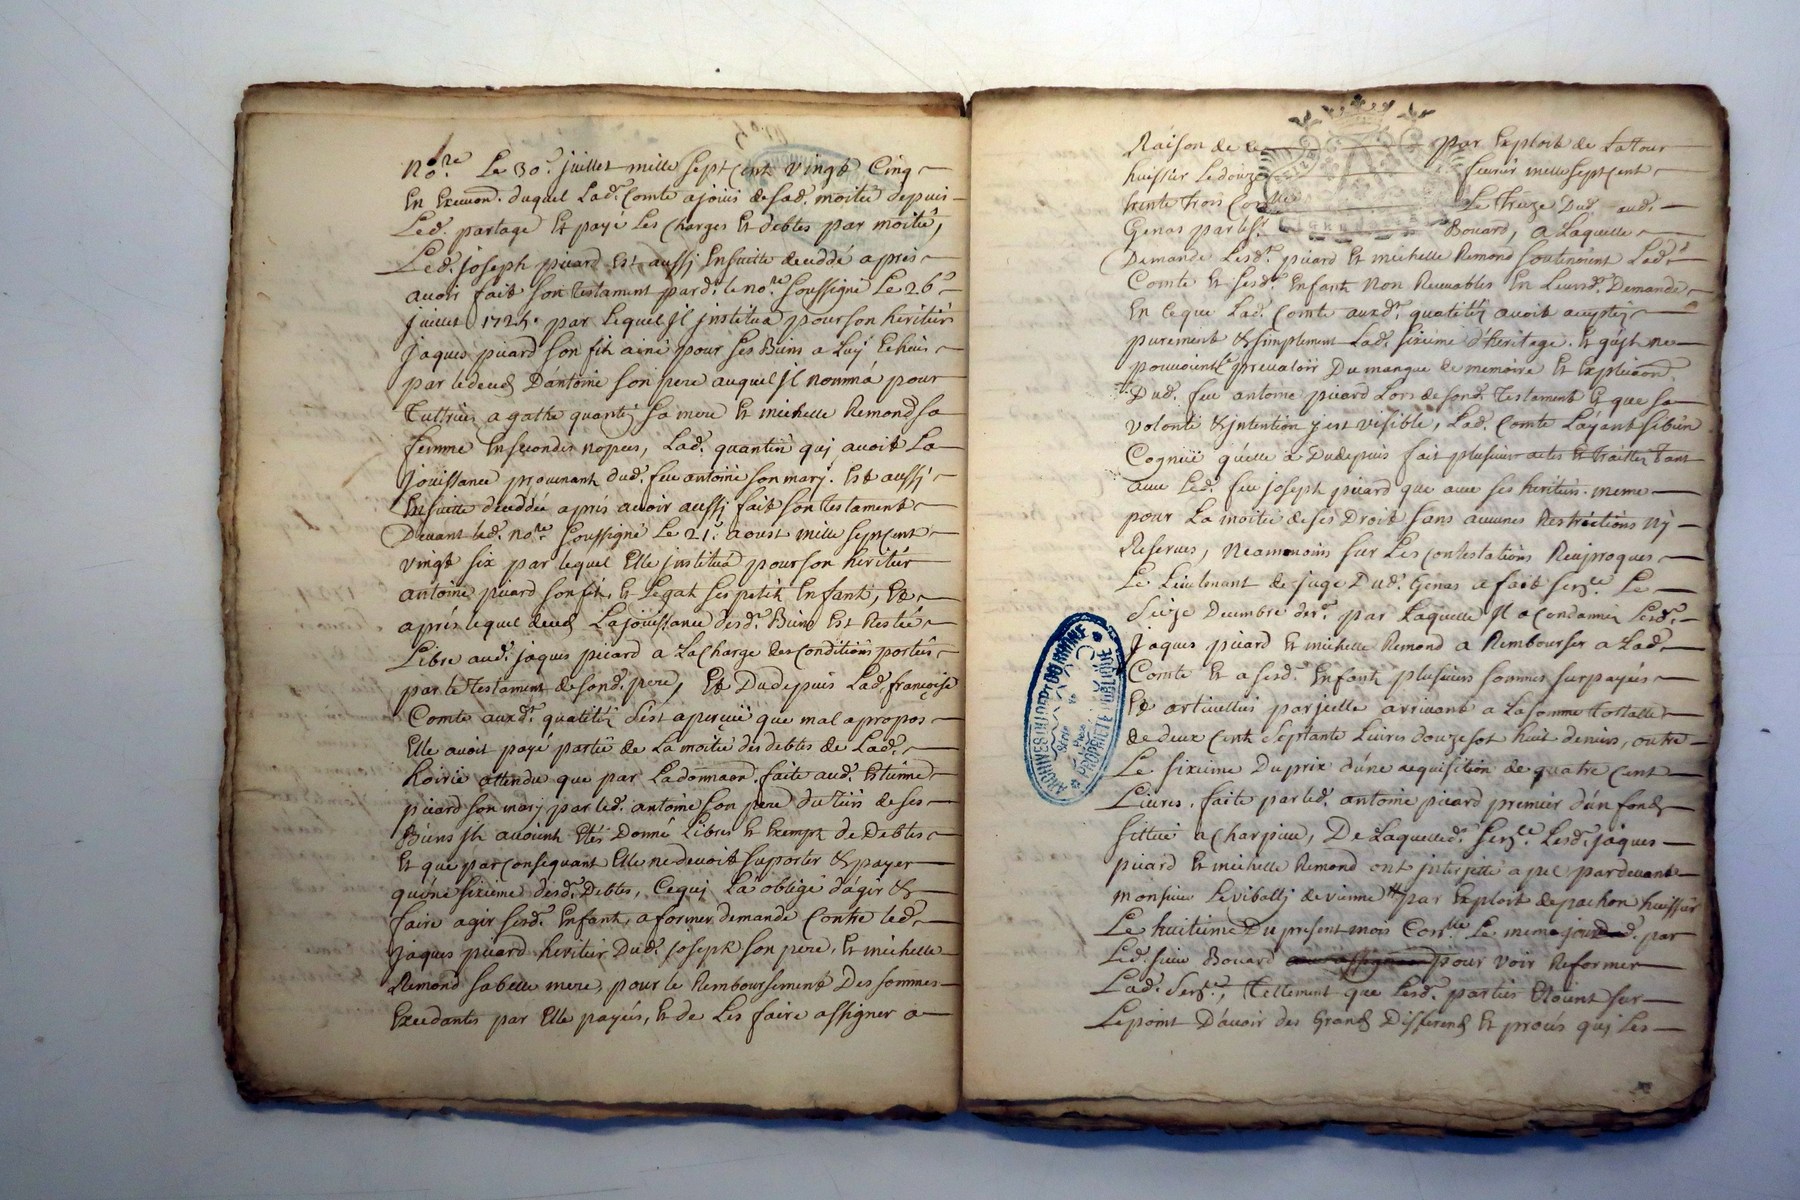 No.re Le 30.e juillet mille sept Cent vingt Cinq
En Execuon. duquel Lad.e Comte a joüi de sad. moitié depuis
Led. partage Et payé Les Charges Et debtes par moitié,
Led. joseph picard Est aussj Ensuitte deceddé apres
avoir fait son testament pard.t le no.re soussigné Le 26.e
juillet 1725. par Lequel jl jnstitua pour son heritier
jaques picard son fils ainé pour ses Biens a Luÿ Echeus
par le deced D'antoine son pere auquel jl nomma pour
Tuttrices agathe quantin sa mere Et michelle Remond sa
femme En secondes nopces, Lad. quantin quj avoit La
Jouissance provenant dud. feu antoine son marj. Est aussj
Ensuitte deceddée apres avoir aussj fait son testament
Devant led. no.re soussigné Le 21.e aoust mille sept cent
vingt six par lequel Elle jnstitua pour son heritier
antoine picard son fils, Et Legat ses petits Enfants, Et
après lequel deced La joüissance desd. Biens Est Restée
Libre aud. jaques picard a La Charge des conditions portées
par le testament de sond. pere, Et Dudepuis Lad. françoise
Comte auxd.es qualités s'est aperceüe que mal a propos
Elle avoit payé partie de La moitié des debtes de Lad.
hoirie attendu que par La donnaon. faite aud. Estienne
picard son marj par led. antoine son pere du tiers de ses
Biens jls avoient Etés Donné Libres Et Exempts de Debtes
Et que par consequant Elle ne devoit suporter & payer
qu'une sixieme desd. Debtes, Cequj La obligé d'agir &
faire agir sesd. Enfants, a former demande Contre led.
Jaques picard heritier Dud. Joseph son pere, Et michelle
Remond sa belle mere, pour le Remboursement Des sommes
Excedantes par Elle payées, Et de Les faire assigner a
Raison de ce par Exploit de Latour
huissier Le douze fevrier mille sept cent
trente trois Con.lle Le Treize Dud. aud.
Genas par le s.r Bouard, a Laquelle
Demande Lesd. picard Et michelle Remond soutinrent Lad.
Comte Et sesd. Enfants Non Recevables En Leursd. Demande
En ceque Lad. Comte auxd. qualités avoit acceptés
purement & simplement Lad. sixieme d'heritage. Et qu'jls ne
pouvoient prevaloir Du manque de memoire Et Explicaon
Dud. feu antoine picard Lors de sond. Testament Et que sa
volonté & jntention y est visible, Lad. Comte L'ayant si bien
Cognüe qu'elle a Dudepuis fait plusieurs actes Et traittés Tant
avec Led. feu joseph picard que avec ses heritiers meme
pour La moitié de ses Droits sans aucunes Restrictions nÿ
Reserves, Neamoins sur Les contestations Reciproques
Le Lieutenant de juge Dud. Genas a fait sen.ce Le
Seize Decembre der. par Laquelle Jl a condamné Lesd.
Jaques picard Et michelle Remond a Rembourser a Lad.
Comte Et a sesd. Enfants plusieurs sommes surpayées
Et articullées par jcelle arrivant a La somme tottalle
de deux Cent septante Livres douze sol huit deniers, outre
Le sixieme Du prix d'une acquisition de quatre Cent
Livres, faite par led. antoine picard premier d'un fonds
sittué a Charpieu, De Laquelle d. sen.ce Lesd. jaques
picard Et michelle Remond ont jnterjetté apel pardevant
monsieur Le viballj de vienne par Exploit de pachon huissier
Le huitieme Du present mois Con.lle Le meme jour par
Led. sieur Bouard pour voir Reformer
Lad. Sen.ce, Tellement que Lesd. parties Etoient sur
Le point D'avoir des Grands Differends Et procés quj Les
ARCHIVES DU DEPT DU RHÔNE
PROPRIÉTÉ PUBLIQUE